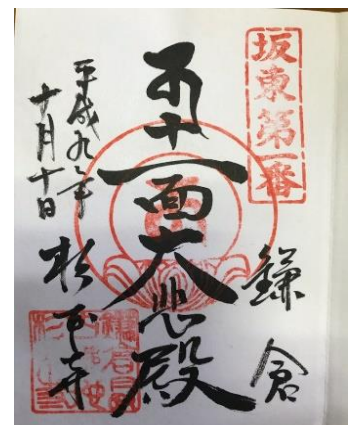 坂東第一番
鎌倉
十一面大悲殿
平成九年
十月十日
杉本寺